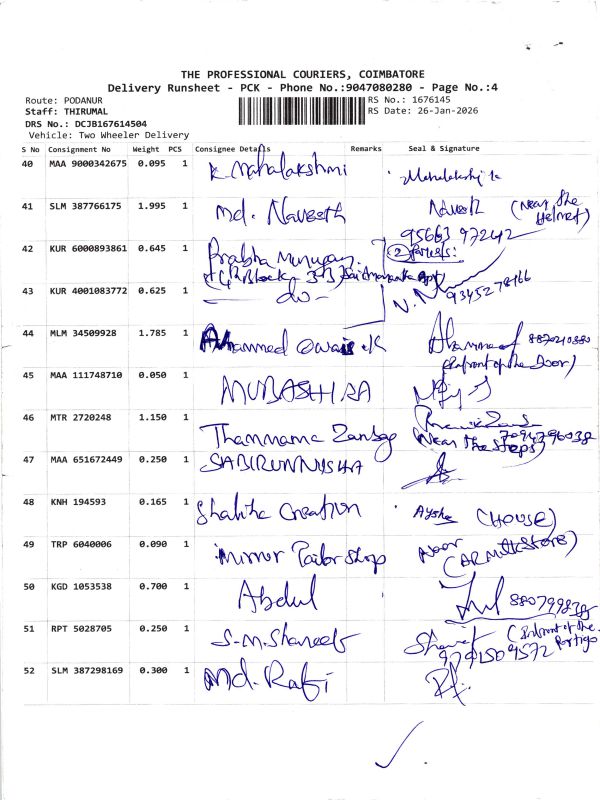 THE PROFESSIONAL COURIERS, COIMBATORE
Delivery Runsheet - PCK - Phone No.:9047080280 - Page No.:4
Route: PODANUR
RS No.: 1676145
Staff: THIRUMAL
RS Date: 26-Jan-2026
DRS No.: DCJB167614504
Vehicle: Two Wheeler Delivery
S No Consignment No Weight PCS Consignee Details Remarks Seal & Signature
40 MAA 9000342675 0.095 1 K. Mahalakshmi Mahalakshmi K
41 SLM 387766175 1.995 1 Md. Naveeth (Near the Helmet)
95663 97242
42 KUR 6000893861 0.645 1 Prabha Murugan
43 KUR 4001083772 0.625 1 - do - 9345278166
44 MLM 34509928 1.785 1 Ahammed Owais .K 8870210380
(Infront of the Door)
45 MAA 111748710 0.050 1 MUBASHIRA
46 MTR 2720248 1.150 1 Thammama 7094796038
(Near the Steps)
47 MAA 651672449 0.250 1 SABIRUNNISHA
48 KNH 194593 0.165 1 Creation Aysha (HOUSE)
49 TRP 6040006 0.090 1 Mirror Tailor Shop Noor
(AR Milk Store)
50 KGD 1053538 0.700 1 Abdul
51 RPT 5028705 0.250 1 S.M. Shareef Sharief (Infront of the Portigo
9791509572
52 SLM 387298169 0.300 1 Md. Rafi